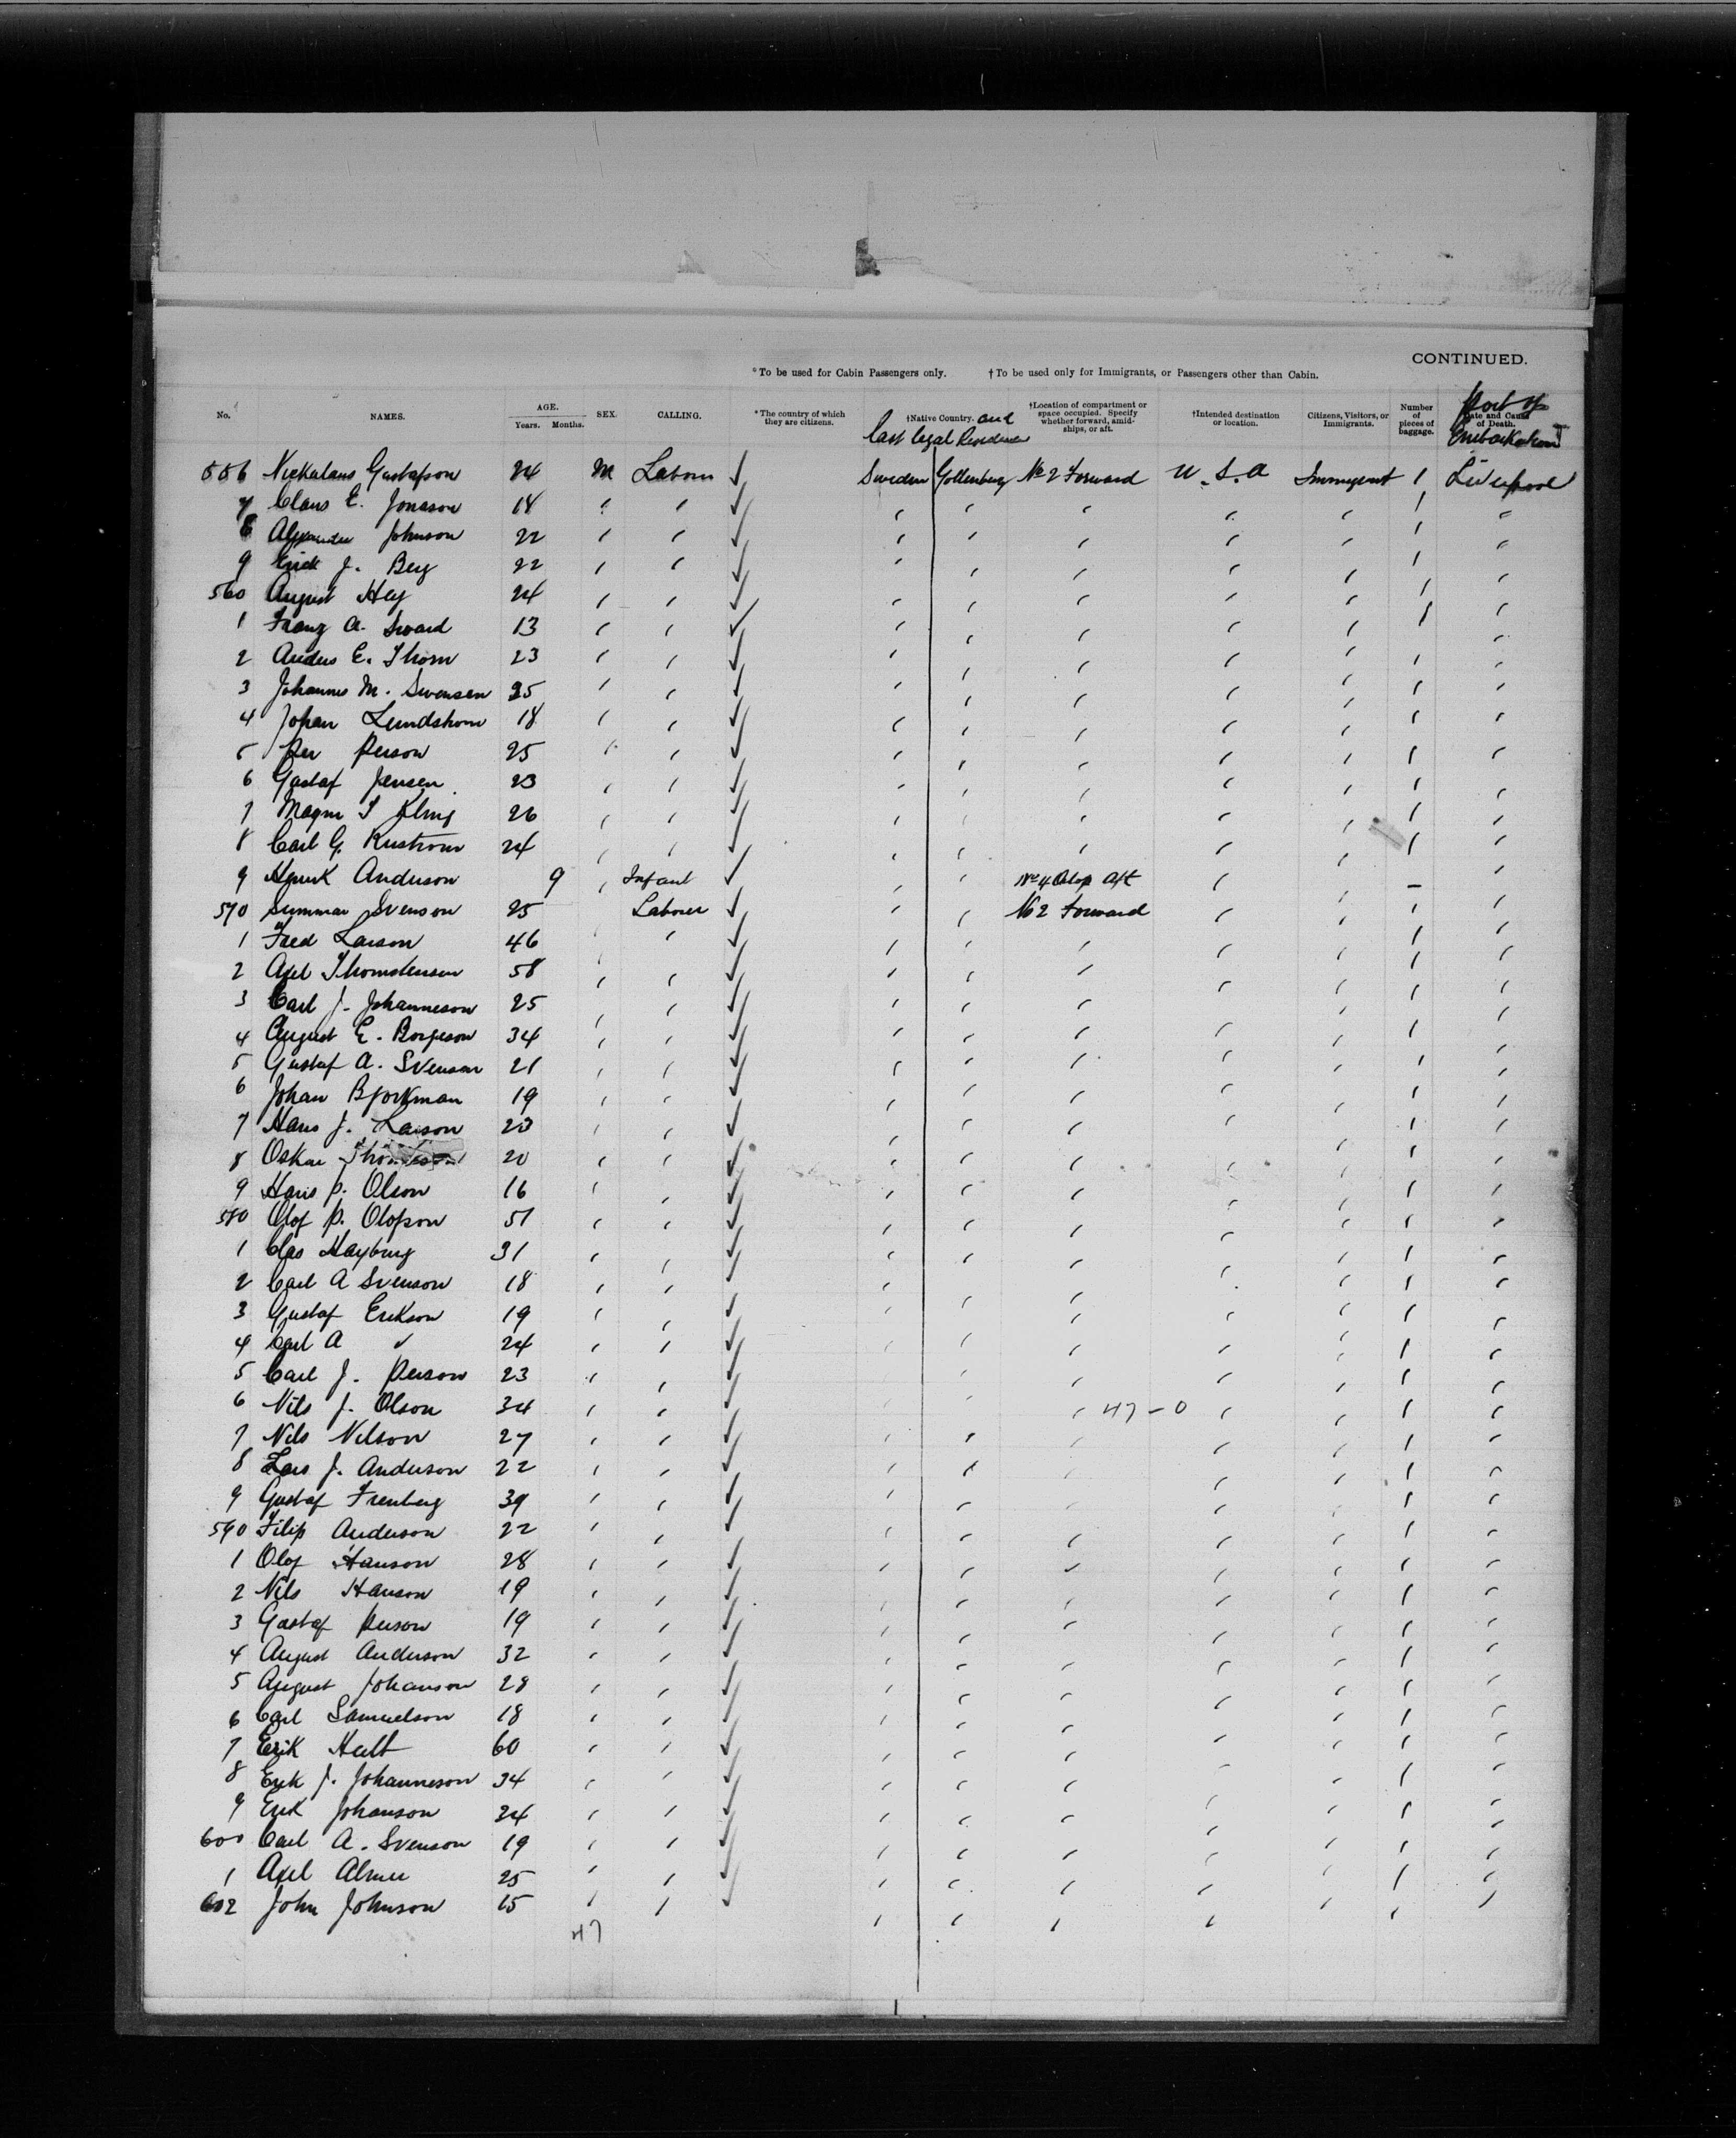 CONTINUED.
*To be used for Cabin Passengers only. †To be used only for Immigrants, or Passengers other than Cabin.
No. NAMES. AGE. Years. Months. SEX. CALLING. *The country of which they are citizens. †Native Country. and last legal Residence †Location of compartment or space occupied. Specify whether forward, amidships, or aft. †Intended destination or location. Citizens, Visitors, or Immigrants. Number of pieces of baggage. Date and Cause of Death. Port of Embarkation
556 Nickalaus Gustafson 24 M Laborer ✓ Sweden Gottenburg No 2 Forward U.S.A Immigrant 1 Liverpool
7 Claus E. Jonasson 14 " " ✓ " " " " " 1 "
8 Alexander Johnson 22 " " ✓ " " " " " 1 "
9 Erick J. Berg 22 " " ✓ " " " " " 1 "
560 August Hey 24 " " ✓ " " " " " 1 "
1 Franz A. Sward 13 " " ✓ " " " " " 1 "
2 Anders E. Thorn 23 " " ✓ " " " " " 1 "
3 Johannes M. Swensen 25 " " ✓ " " " " " 1 "
4 Johan Lundstrom 18 " " ✓ " " " " " 1 "
5 Per Person 25 " " ✓ " " " " " 1 "
6 Gustaf Jensen 23 " " ✓ " " " " " 1 "
7 Magnu 26 " " ✓ " " " " " 1 "
8 Carl G. 24 " " ✓ " " " " " 1 "
9 Henrik Anderson 9 " Infant ✓ " " No 4 Orlop Aft " " – "
570 Svenson 25 Laborer ✓ " " No 2 Forward " " 1 "
1 Fred Larson 46 " " ✓ " " " " " 1 "
2 Axel Thorstensen 58 " " ✓ " " " " " 1 "
3 Carl J. Johanneson 25 " " ✓ " " " " " 1 "
4 August E. Borjeson 34 " " ✓ " " " " " 1 "
5 Gustaf A. Svenson 21 " " ✓ " " " " " 1 "
6 Johan Bjorkman 19 " " ✓ " " " " " 1 "
7 Hans J. Larson 23 " " ✓ " " " " " 1 "
8 Oskar 20 " " ✓ " " " " " 1 "
9 Hans P. Olson 16 " " ✓ " " " " " 1 "
580 Olof P. Olofson 51 " " ✓ " " " " " 1 "
1 Clas 31 " " ✓ " " " " " 1 "
2 Carl A Svenson 18 " " ✓ " " " " " 1 "
3 Gustaf Erikson 19 " " ✓ " " " " " 1 "
4 Carl A ✓ 24 " " ✓ " " " " " 1 "
5 Carl J. Person 23 " " ✓ " " " " " 1 "
6 Nils J. Olson 34 " " ✓ " " " 47-0 " " 1 "
7 Nels Nelson 27 " " ✓ " " " " " 1 "
8 Lars J. Anderson 22 " " ✓ " " " " " 1 "
9 Gustaf Frenberg 39 " " ✓ " " " " " 1 "
590 Filip Anderson 22 " " ✓ " " " " " 1 "
1 Olof Hanson 28 " " ✓ " " " " " 1 "
2 Nils Hanson 19 " " ✓ " " " " " 1 "
3 Gustaf Person 19 " " ✓ " " " " " 1 "
4 August Anderson 32 " " ✓ " " " " " 1 "
5 August Johanson 28 " " ✓ " " " " " 1 "
6 Carl Samuelson 18 " " ✓ " " " " " 1 "
7 Erik Hult 60 " " ✓ " " " " " 1 "
8 Erik J. Johanneson 34 " " ✓ " " " " " 1 "
9 Erik Johanson 24 " " ✓ " " " " " 1 "
600 Carl A. Svenson 19 " " ✓ " " " " " 1 "
1 Axel Almer 25 " " ✓ " " " " " 1 "
602 John Johnson 15 " " ✓ " " " " " 1 "
47